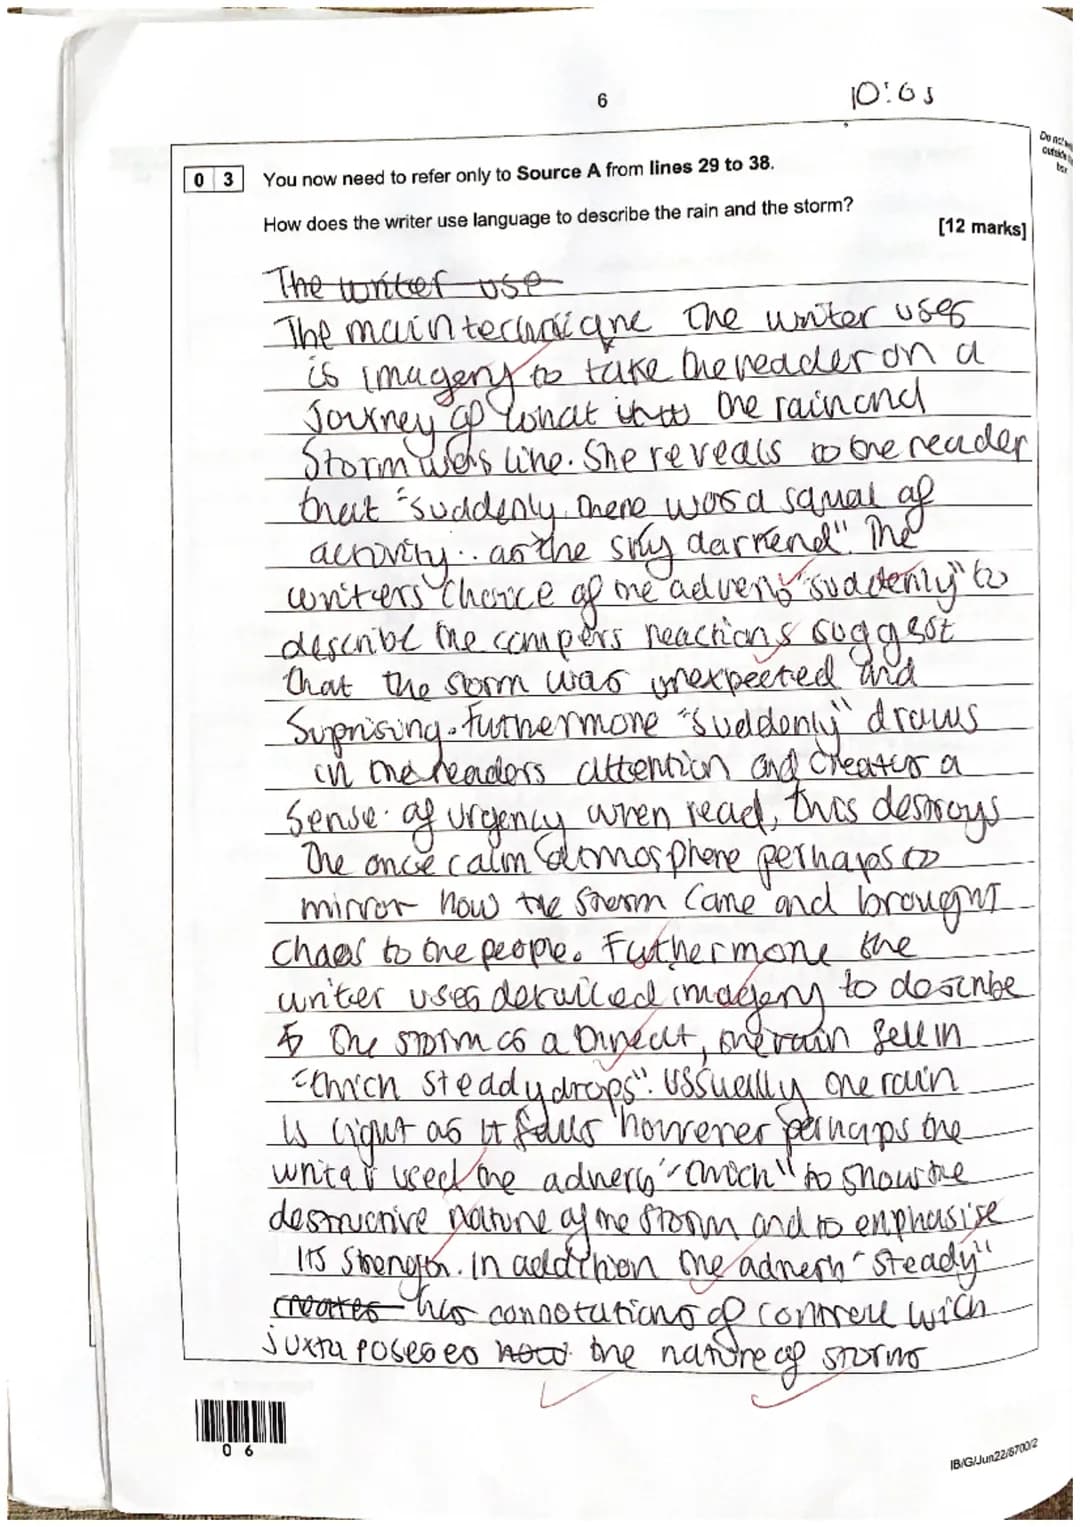 6
10:05
Do not w
outside
box
0 3 You now need to refer only to Source A from lines 29 to 38.
How does the writer use language to describe the rain and the storm?
[12 marks]
The writer use
The main technique the writer uses
is imagery to take the reader on a
journey of what the rain and
Storm was like. She reveals to the reader
that "suddenly there was a squal of
activity.. as the sky darkend". The
writers choice of the adverb "suddenly" to
describe the campers reactions suggest
that the storm was unexpected and
Suprising. Futhermore "suddenly" draws
in the readers attention and creates a
sense of urgency when read, this destroys
the once calm atmosphere perhaps to
mirror how the storm came and brought
chaos to the people. Futhermore the
writer uses detailed imagery to describe
the storm as a threat, the rain fell in
"thich steady drops". Ussually the rain
is light as it falls however perhaps the
writer used the adverb "thich" to show the
destructive nature of the storm and to enphasise
its strength. In addition the adverb "steady"
creates has connotations of control wich
juxtaposes how the nature of storms
0 6
IB/G/Jun22/8700/2